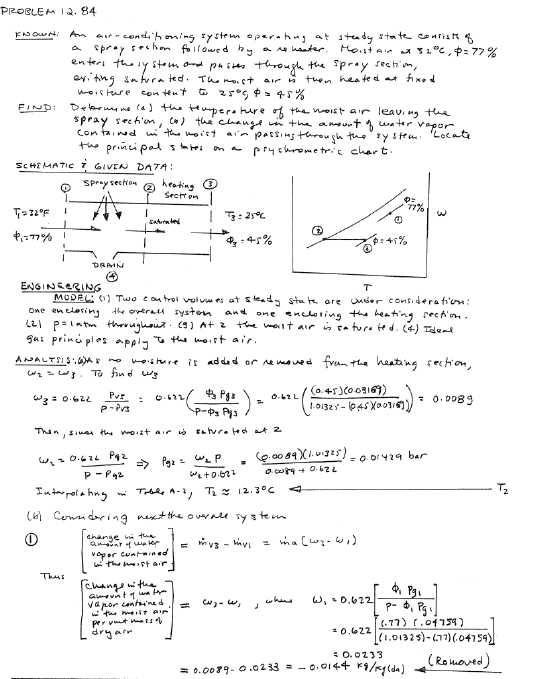 PROBLEM 12.84
KNOWN: An air-conditioning system operating at steady state consists of
a spray section followed by a reheater. Moist air at 32°C, ϕ=77%
enters the system and passes through the spray section,
exiting saturated. The moist air is then heated at fixed
moisture content to 25°C, ϕ = 45%
FIND: Determine (a) the temperature of the moist air leaving the
spray section, (b) the change in the amount of water vapor
contained in the moist air passing through the system. Locate
the principal states on a psychrometric chart.
SCHEMATIC & GIVEN DATA:
① Spray section ② heating section ③
T₁=32°F
ϕ₁=77%
saturated
T₃=25°C
ϕ₃=45%
DRAIN
④
ϕ=77%
①
ω
②
③
ϕ=45%
T
ENGINEERING
MODEL: (1) Two control volumes at steady state are under consideration:
one enclosing the overall system and one enclosing the heating section.
(2) p=1atm throughout. (3) At 2 the moist air is saturated. (4) Ideal
gas principles apply to the moist air.
ANALYSIS: (a) As no moisture is added or removed from the heating section,
ω₂ = ω₃. To find ω₃
ω₃ = 0.622 Pv3/(P-Pv3) = 0.622 (ϕ₃ Pg3/(P-ϕ₃ Pg3)) = 0.622 ((0.45)(0.03169)/(1.01325-(0.45)(0.03169))) = 0.0089
Then, since the moist air is saturated at 2
ω₂ = 0.622 Pg2/(P-Pg2) ⇒ Pg2 = ω₂ P/(ω₂+0.622) = (0.0089)(1.01325)/(0.0089+0.622) = 0.01429 bar
Interpolating in Table A-2, T₂ ≈ 12.3°C ← T₂
(b) Considering next the overall system
① [change in the amount of water vapor contained in the moist air] = ṁv3 - ṁv1 = ṁa (ω₃-ω₁)
Thus
[change in the amount of water vapor contained in the moist air per unit mass of dry air] = ω₃-ω₁, where ω₁ = 0.622 [ϕ₁ Pg1/(P-ϕ₁ Pg1)]
= 0.622 [(.77)(.04759)/((1.01325)-(.77)(.04759))]
= 0.0233
= 0.0089 - 0.0233 = -0.0144 kg/kg(da) (Removed)